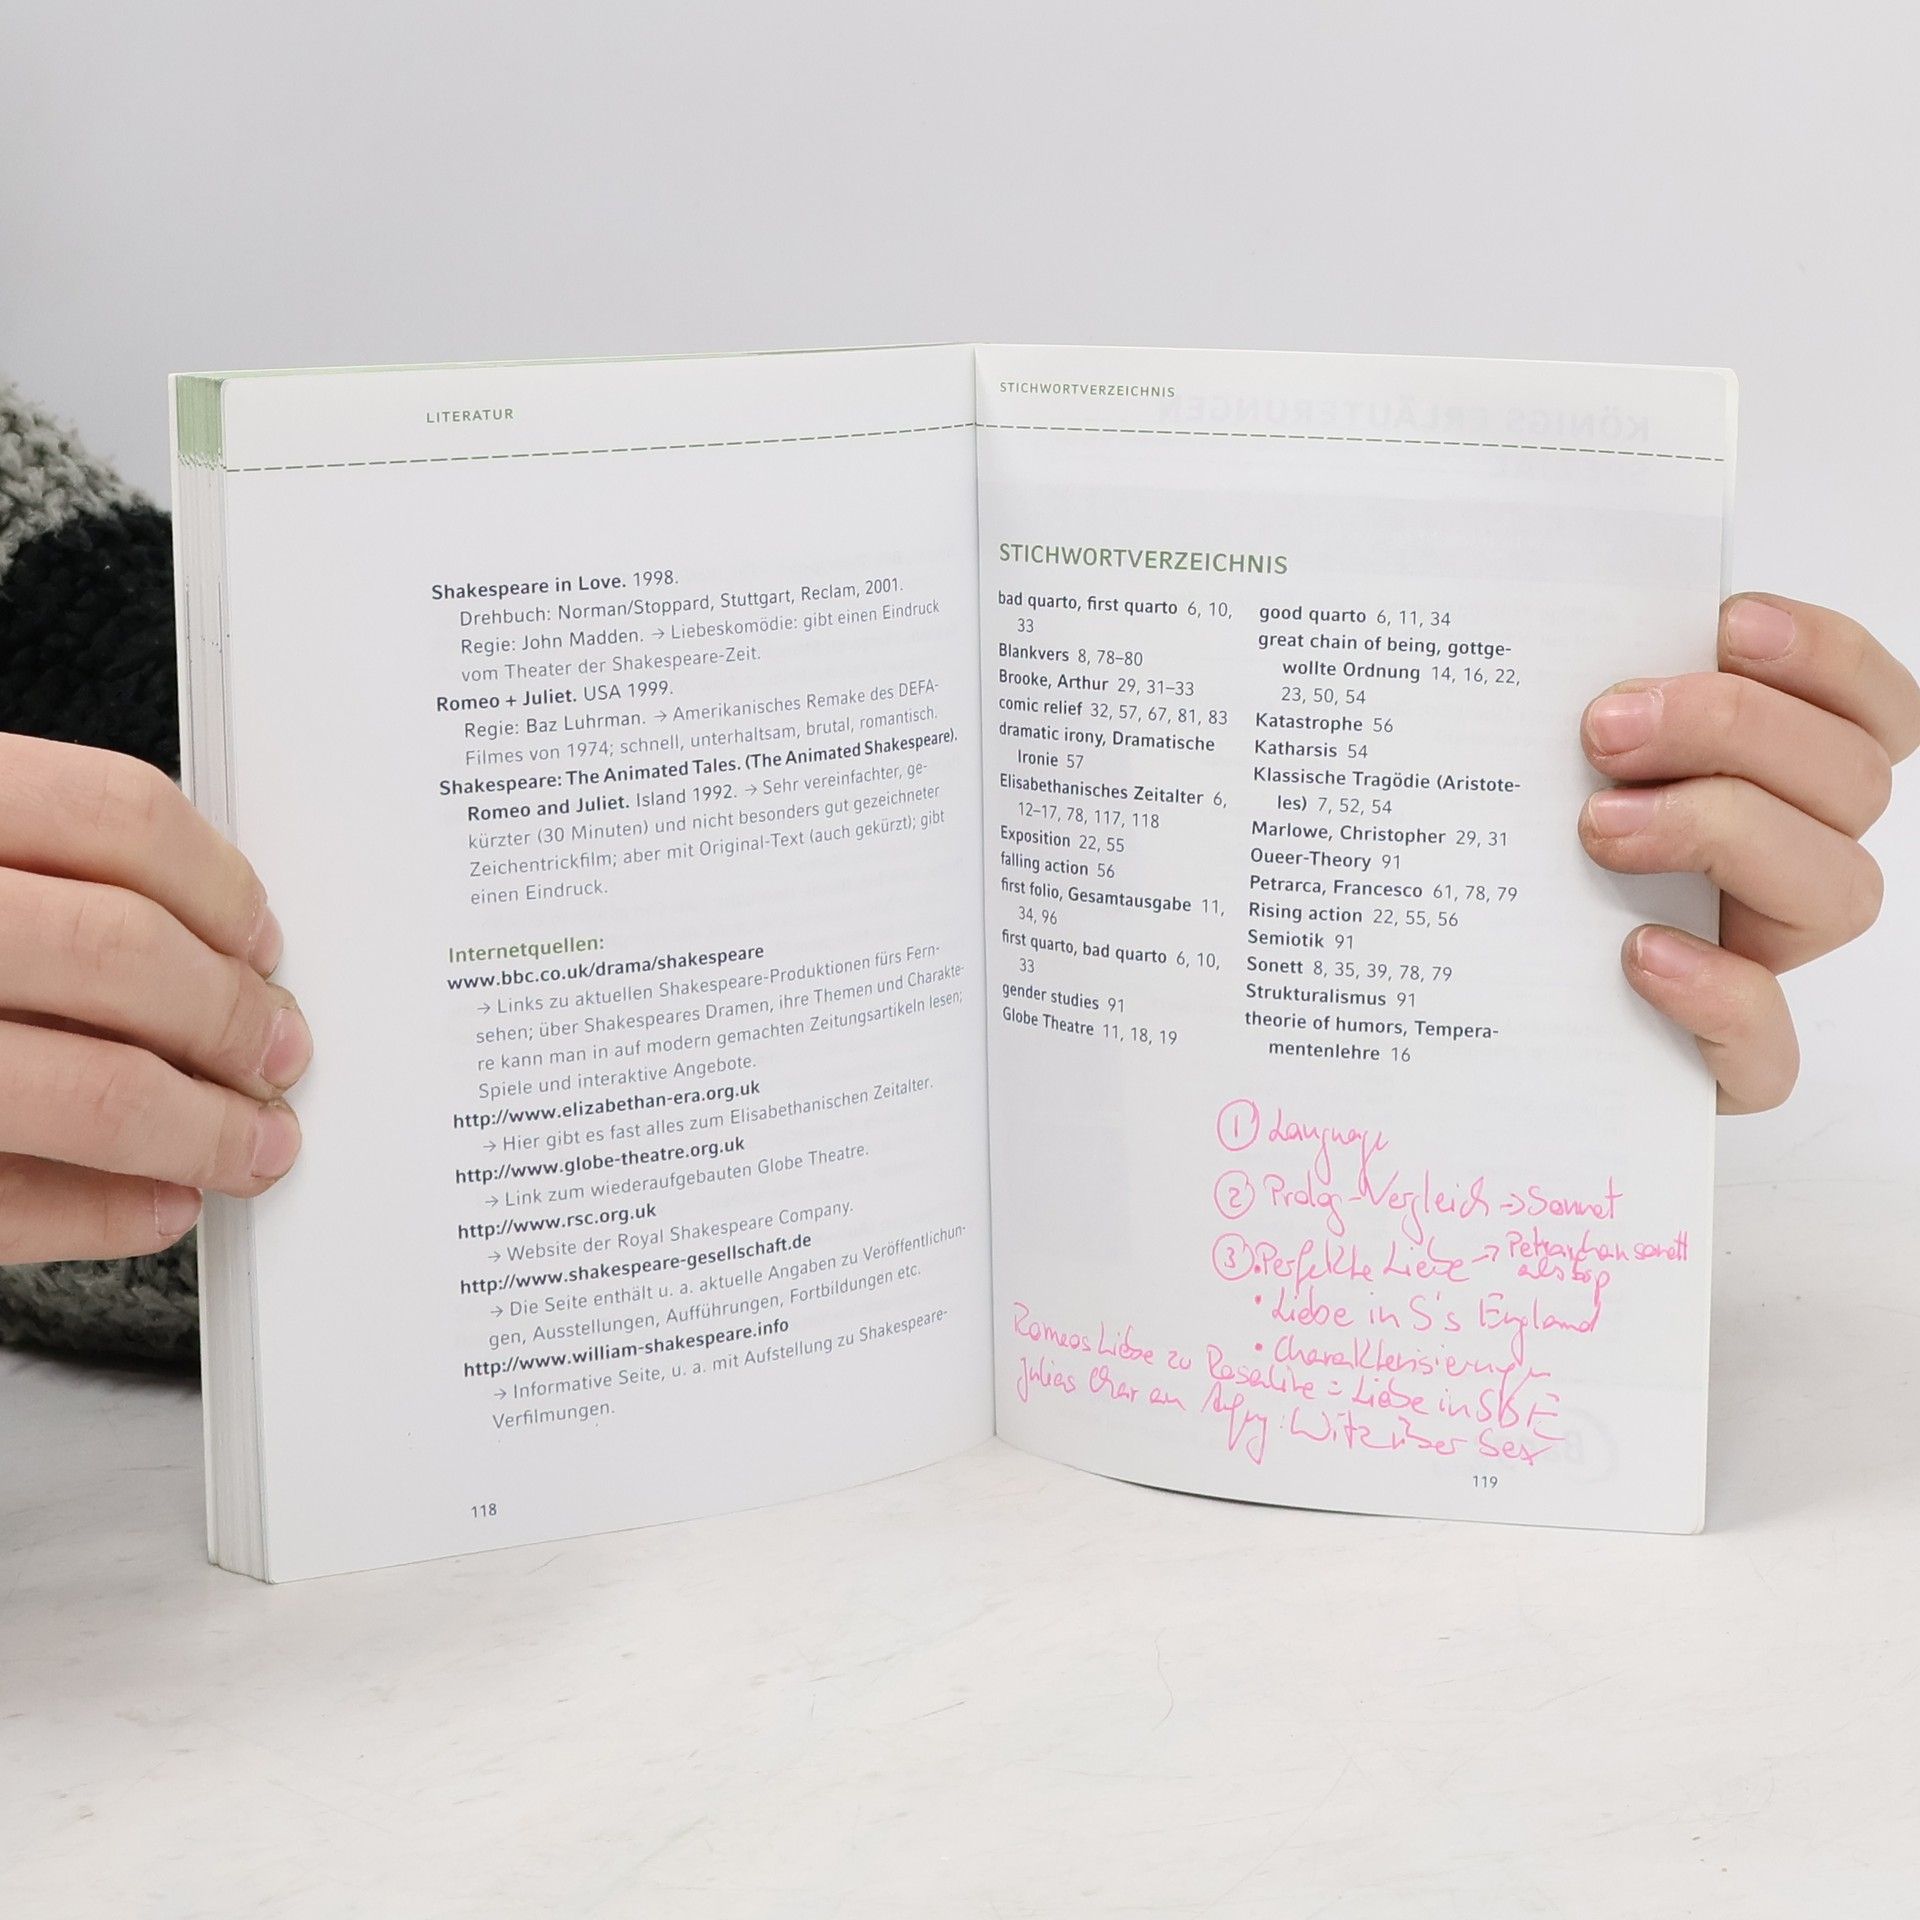 LITERATUR
Shakespeare in Love. 1998.
Drehbuch: Norman/Stoppard, Stuttgart, Reclam, 2001.
Regie: John Madden. → Liebeskomödie: gibt einen Eindruck
vom Theater der Shakespeare-Zeit.
Romeo + Juliet. USA 1999.
Regie: Baz Luhrman. → Amerikanisches Remake des DEFA-
Filmes von 1974; schnell, unterhaltsam, brutal, romantisch.
Shakespeare: The Animated Tales. (The Animated Shakespeare).
Romeo and Juliet. Island 1992. → Sehr vereinfachter, ge-
kürzter (30 Minuten) und nicht besonders gut gezeichneter
Zeichentrickfilm; aber mit Original-Text (auch gekürzt); gibt
einen Eindruck.
Internetquellen:
www.bbc.co.uk/drama/shakespeare
→ Links zu aktuellen Shakespeare-Produktionen fürs Fern-
sehen; über Shakespeares Dramen, ihre Themen und Charakte-
re kann man in auf modern gemachten Zeitungsartikeln lesen;
Spiele und interaktive Angebote.
http://www.elizabethan-era.org.uk
→ Hier gibt es fast alles zum Elisabethanischen Zeitalter.
http://www.globe-theatre.org.uk
→ Link zum wiederaufgebauten Globe Theatre.
http://www.rsc.org.uk
→ Website der Royal Shakespeare Company.
http://www.shakespeare-gesellschaft.de
→ Die Seite enthält u. a. aktuelle Angaben zu Veröffentlichun-
gen, Ausstellungen, Aufführungen, Fortbildungen etc.
http://www.william-shakespeare.info
→ Informative Seite, u. a. mit Aufstellung zu Shakespeare-
Verfilmungen.
118
STICHWORTVERZEICHNIS
STICHWORTVERZEICHNIS
bad quarto, first quarto 6, 10,
33
Blankvers 8, 78–80
Brooke, Arthur 29, 31–33
comic relief 32, 57, 67, 81, 83
dramatic irony, Dramatische
Ironie 57
Elisabethanisches Zeitalter 6,
12–17, 78, 117, 118
Exposition 22, 55
falling action 56
first folio, Gesamtausgabe 11,
34, 96
first quarto, bad quarto 6, 10,
33
gender studies 91
Globe Theatre 11, 18, 19
good quarto 6, 11, 34
great chain of being, gottge-
wollte Ordnung 14, 16, 22,
23, 50, 54
Katastrophe 56
Katharsis 54
Klassische Tragödie (Aristote-
les) 7, 52, 54
Marlowe, Christopher 29, 31
Oueer-Theory 91
Petrarca, Francesco 61, 78, 79
Rising action 22, 55, 56
Semiotik 91
Sonett 8, 35, 39, 78, 79
Strukturalismus 91
theorie of humors, Tempera-
mentenlehre 16
① Language
② Prolog-Vergleich → Sonnet
③ • Perfekte Liebe → Petrarchan sonett
als bsp
• Liebe in S's England
• Charakterisierungen
Romeos Liebe zu Rosaline = Liebe in S's E
Julias Char am Anfg: Witz über Sex
119